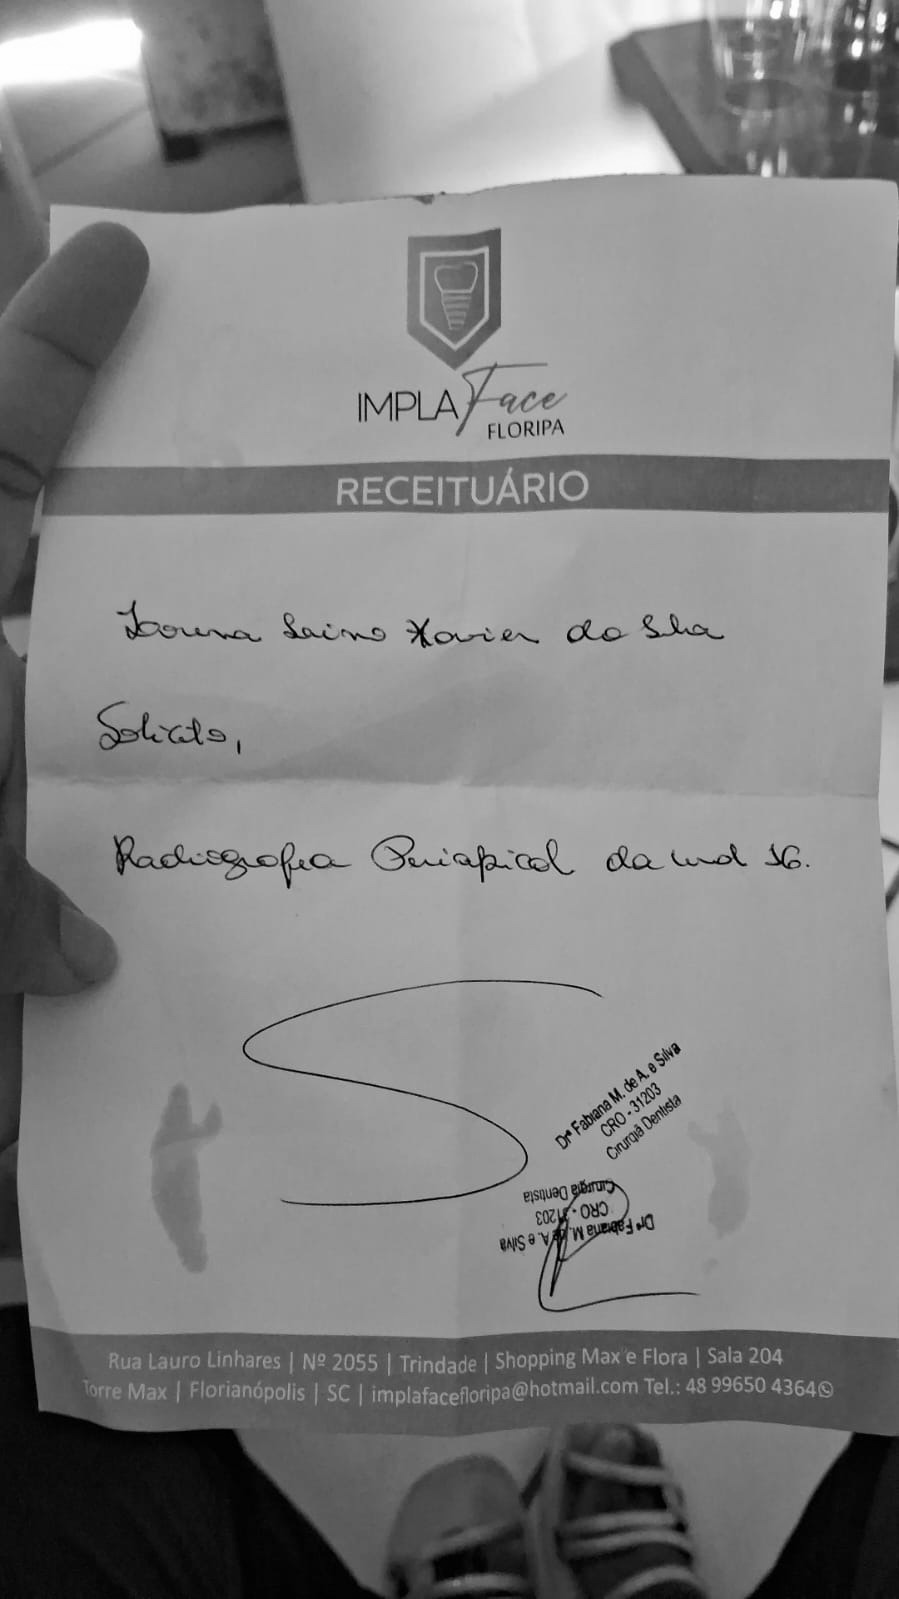 IMPLA Face
FLORIPA
RECEITUÁRIO
Xavier da Silva
Solicito,
Radiografia Periapical da und 16.
Drª Fabiana M. de A. e Silva
CRO - 31203
Cirurgiã Dentista
Drª Fabiana M. de A. e Silva
CRO - 31203
Cirurgiã Dentista
Rua Lauro Linhares | Nº 2055 | Trindade | Shopping Max e Flora | Sala 204
Torre Max | Florianópolis | SC | implafacefloripa@hotmail.com Tel.: 48 99650 4364